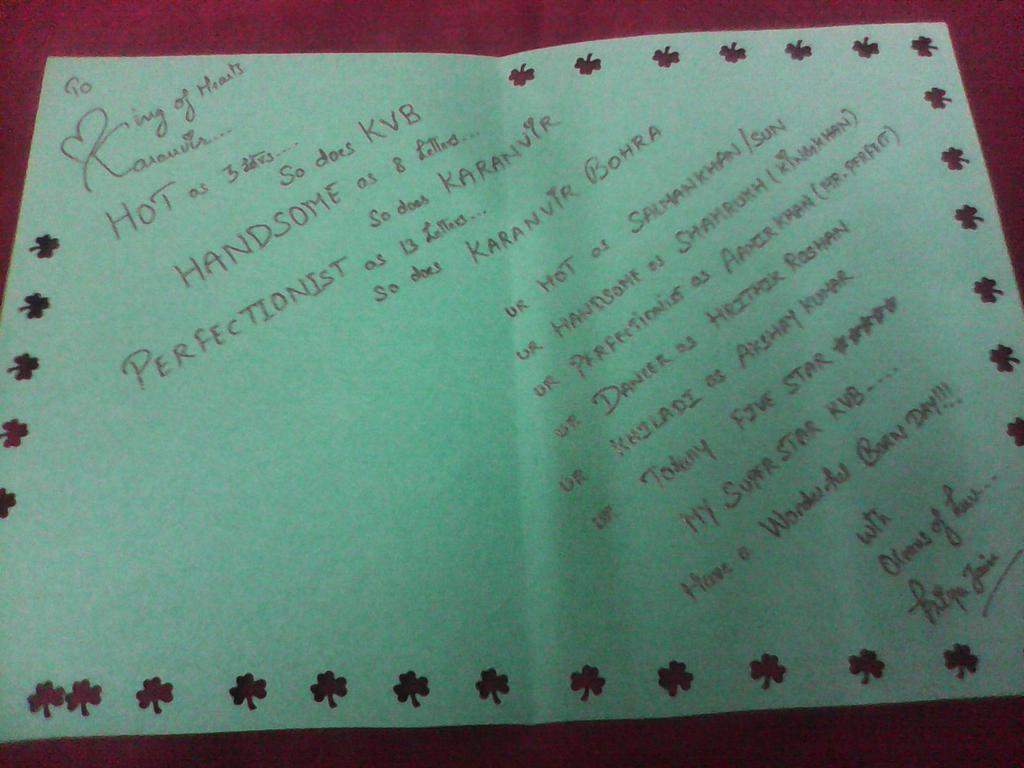 To
King of Hearts
Karanvir...
HOT as 3 letters....
So does KVB
HANDSOME as 8 letters....
So does KARANVIR
PERFECTIONIST as 13 letters...
So does KARANVIR BOHRA
UR HOT as SALMANKHAN/SUN
UR HANDSOME as SHAHRUKH (KINGKHAN)
UR PERFECTIONIST as AAMIRKHAN (MR. PERFECT)
UR DANCER as HRITHIK ROSHAN
UR KHILADI as AKSHAY KUMAR
UR TOTALLY FIVE STAR *****
MY SUPERSTAR KVB.....
Have a Wonderful BORN DAY!!!
with
Oceans of Love...
Priya Jain